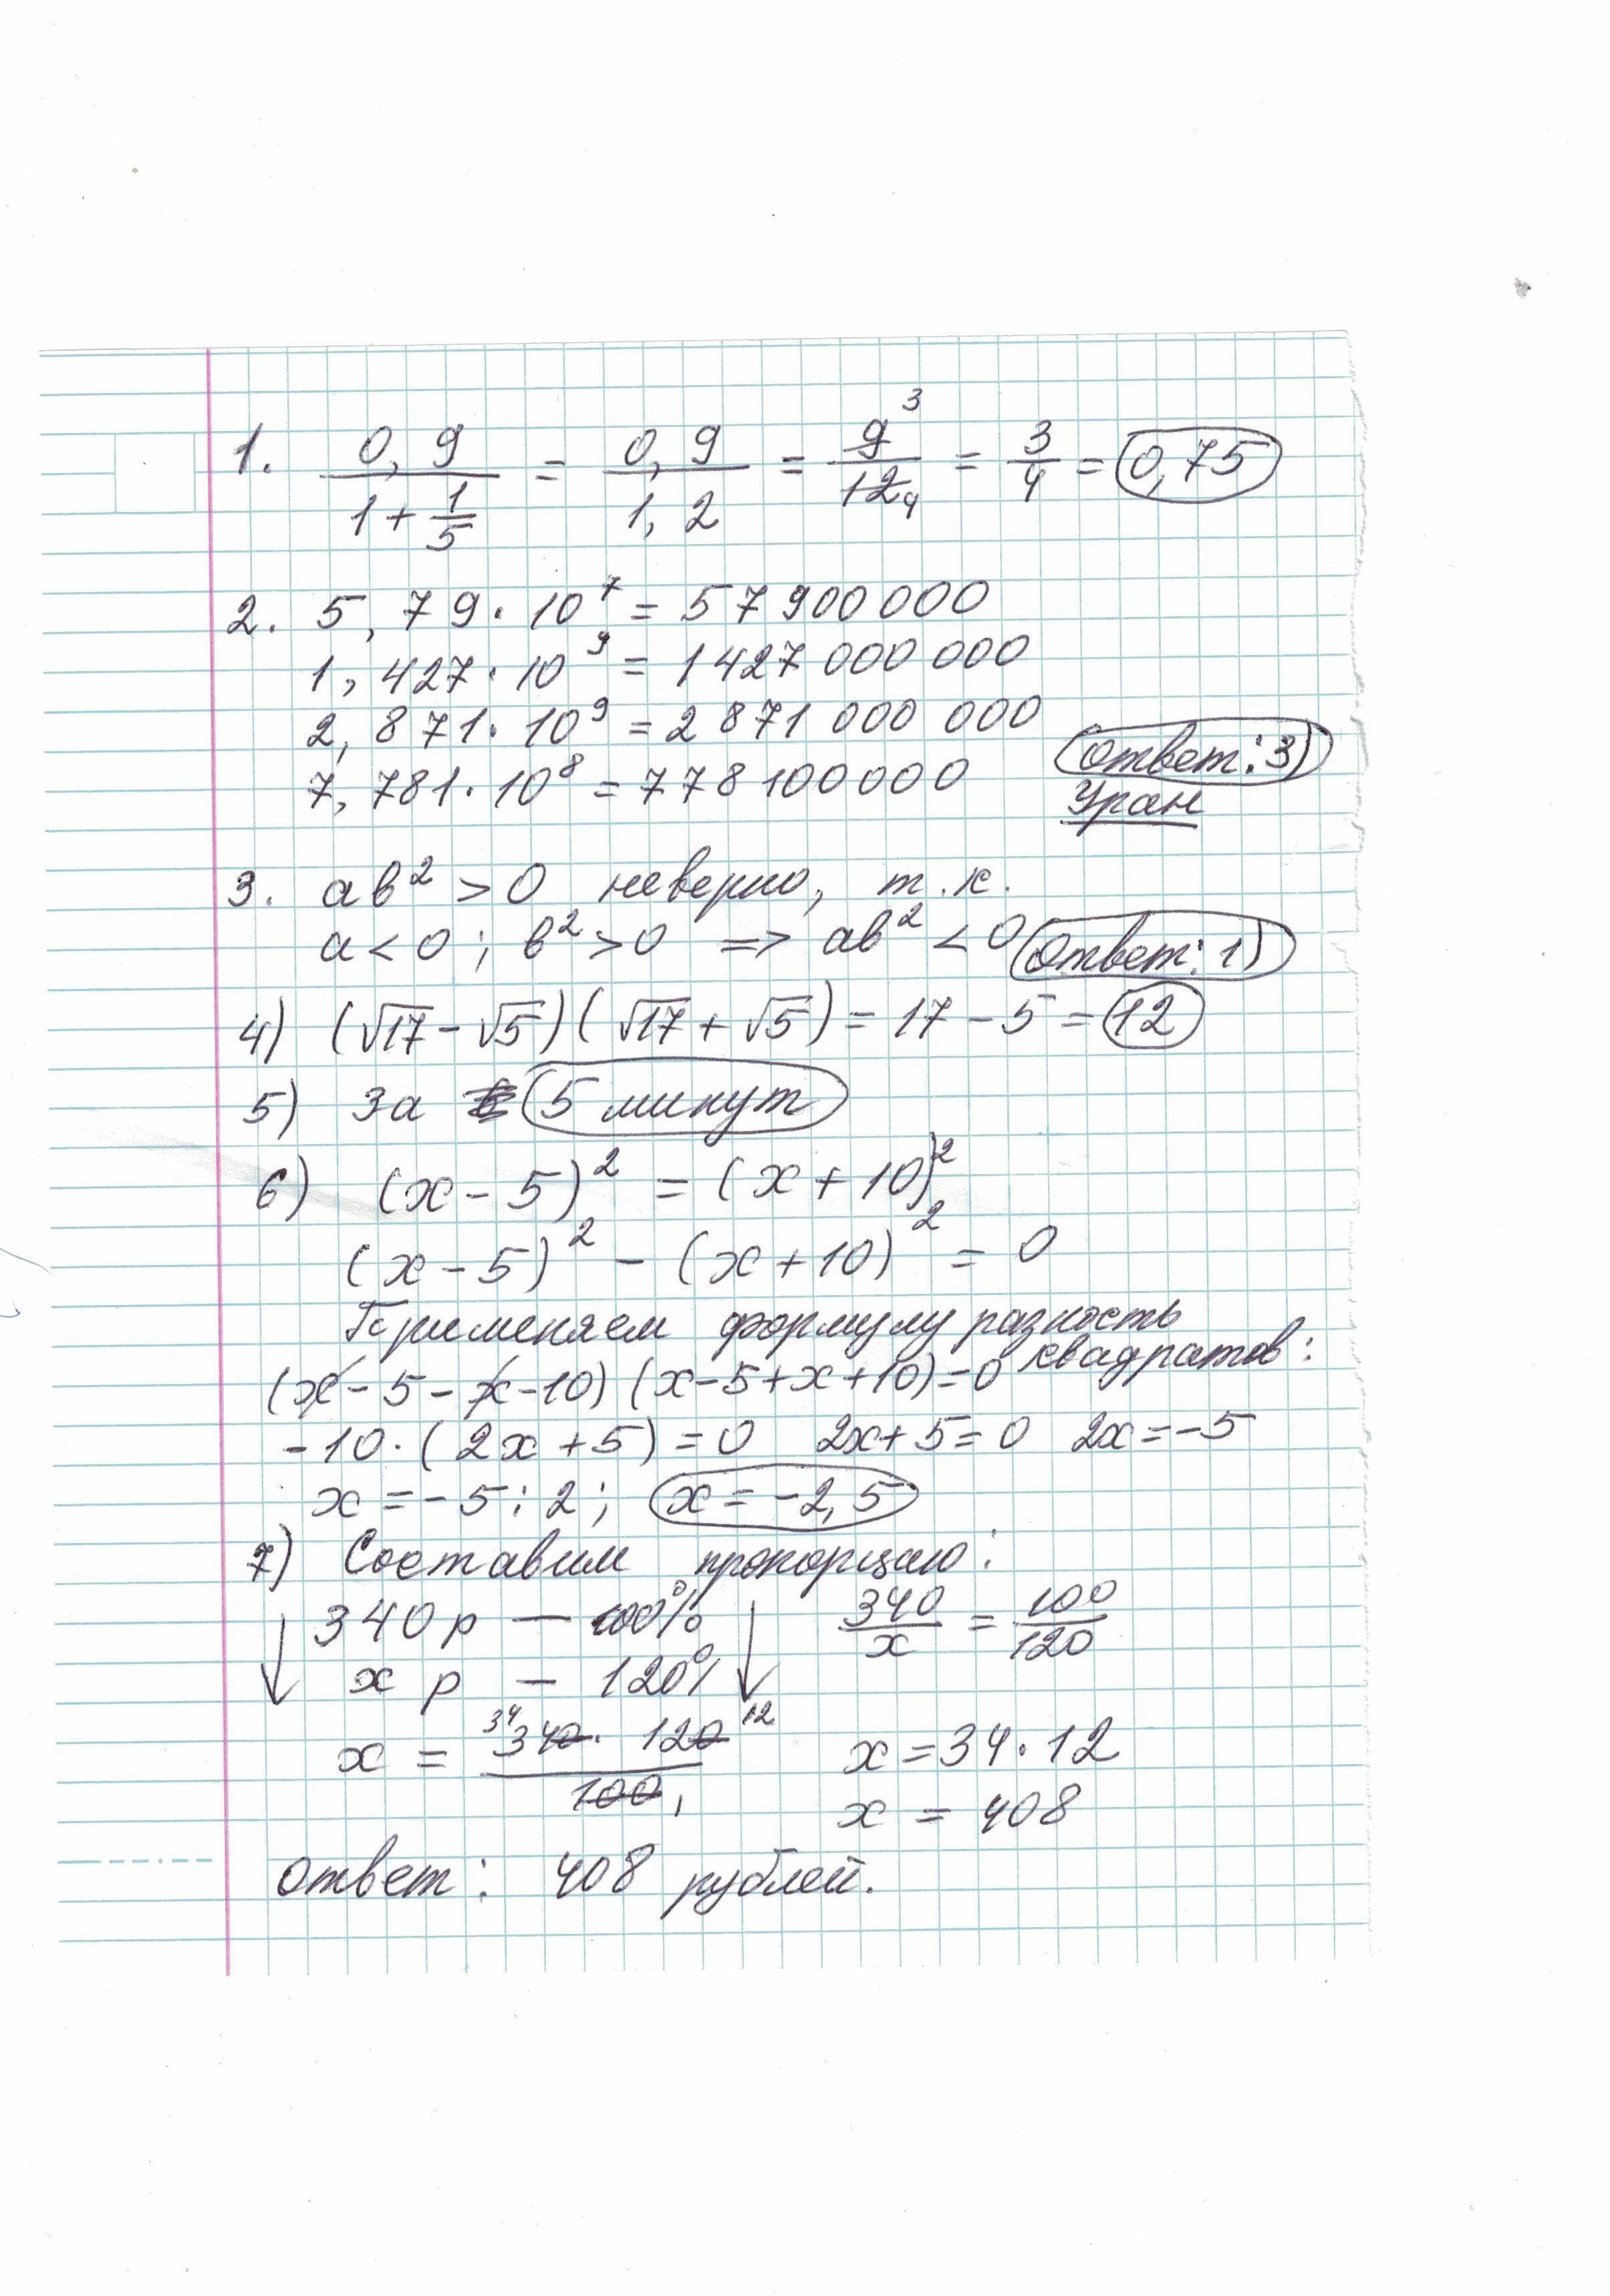 1. 0,9/(1+1/5) = 0,9/1,2 = 9³/12₄ = 3/4 = 0,75
2. 5,79·10⁷ = 57900000
1,427·10⁹ = 1427 000 000
2,871·10⁹ = 2871 000 000
7,781·10⁸ = 778100000 Ответ: 3)
Уран
3. ab² > 0 неверно, т.к.
a < 0; b² > 0 => ab² < 0 Ответ: 1)
4) (√17 - √5)(√17 + √5) = 17 - 5 = 12
5) За 5 минут
6) (x - 5)² = (x + 10)²
(x - 5)² - (x + 10)² = 0
Применяем формулу разность
квадратов:
(x - 5 - x - 10)(x - 5 + x + 10) = 0
-10·(2x + 5) = 0 2x + 5 = 0 2x = -5
x = -5 : 2; x = -2,5
7) Составим пропорцию:
↓ 340 р — 100% ↓ 340/x = 100/120
x р — 120%
x = 34 340 · 120 12 / 100 1 x = 34·12
x = 408
Ответ: 408 рублей.